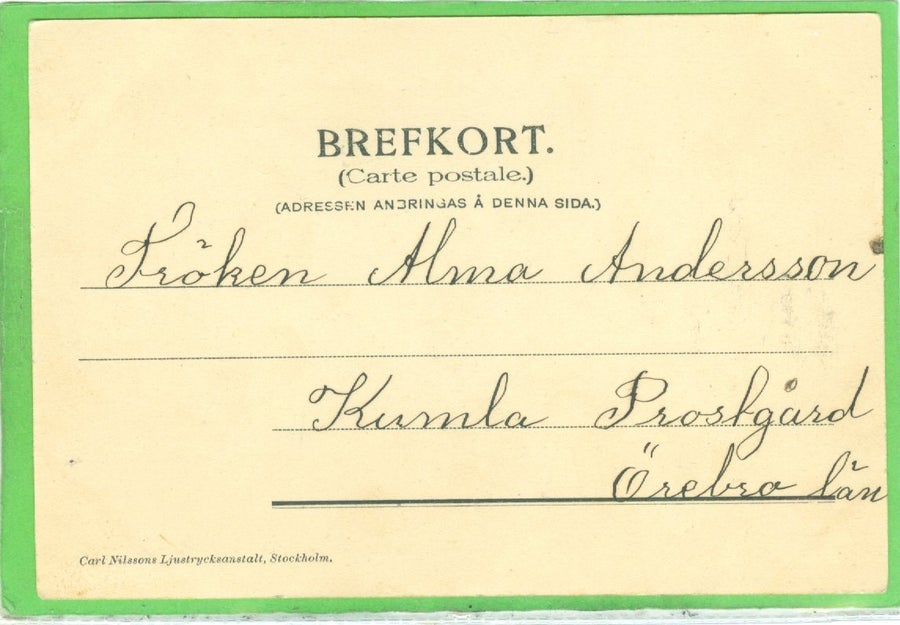 BREFKORT.
(Carte postale.)
(ADRESSEN ANBRINGAS Å DENNA SIDA.)
Fröken Alma Andersson
Kumla Prostgård
Örebro län
Carl Nilssons Ljustrycksanstalt, Stockholm.